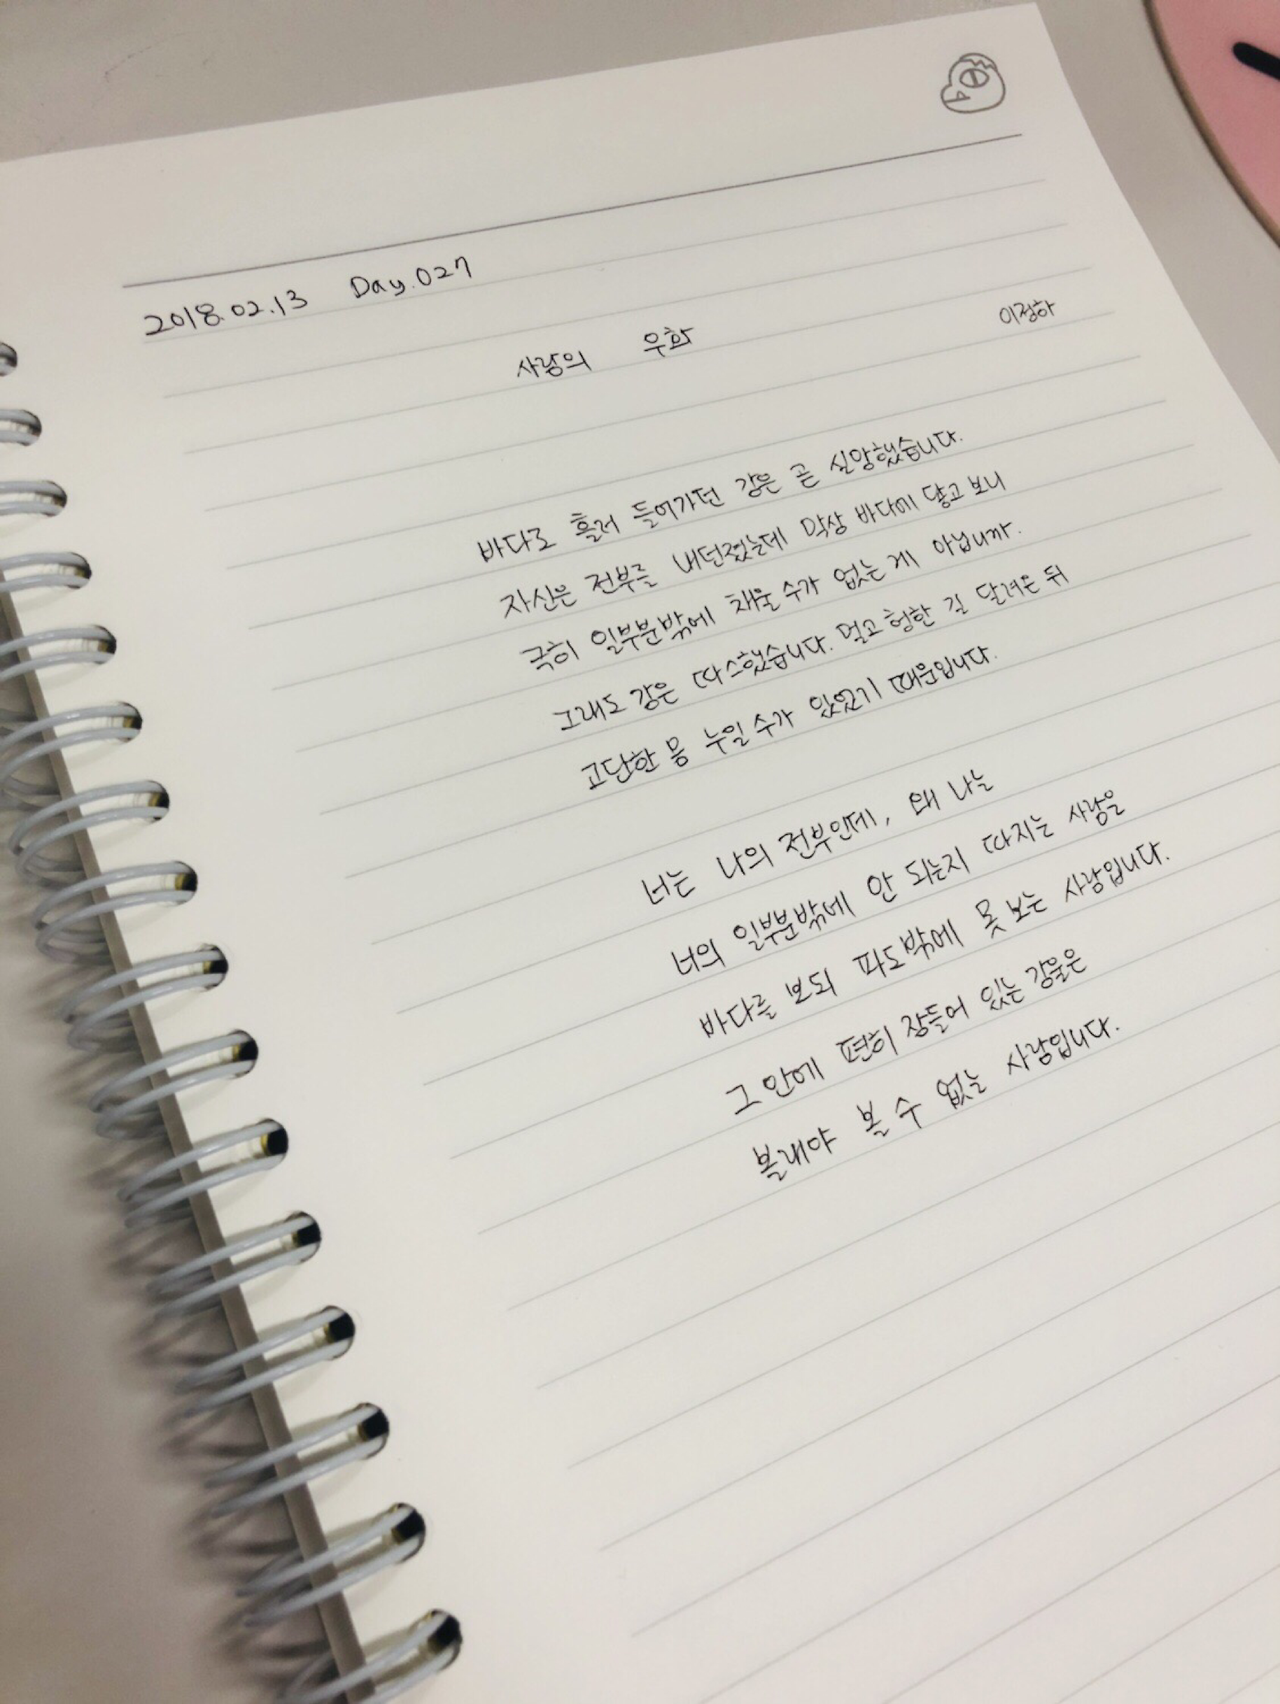 2018.02.13 Day.027
사랑의 우화
이정하
바다로 흘러 들어가던 강은 곧 실망했습니다.
자신은 전부를 내던졌는데 막상 바다에 닿고 보니
극히 일부분밖에 채울 수가 없는 게 아닙니까.
그래도 강은 따스했습니다. 멀고 험한 길 달려온 뒤
고단한 몸 누일 수가 있었기 때문입니다.
너는 나의 전부인데, 왜 나는
너의 일부분밖에 안 되는지 따지는 사랑은
바다를 보되 파도밖에 못 보는 사랑입니다.
그 안에 편히 잠들어 있는 강물은
볼래야 볼 수 없는 사랑입니다.